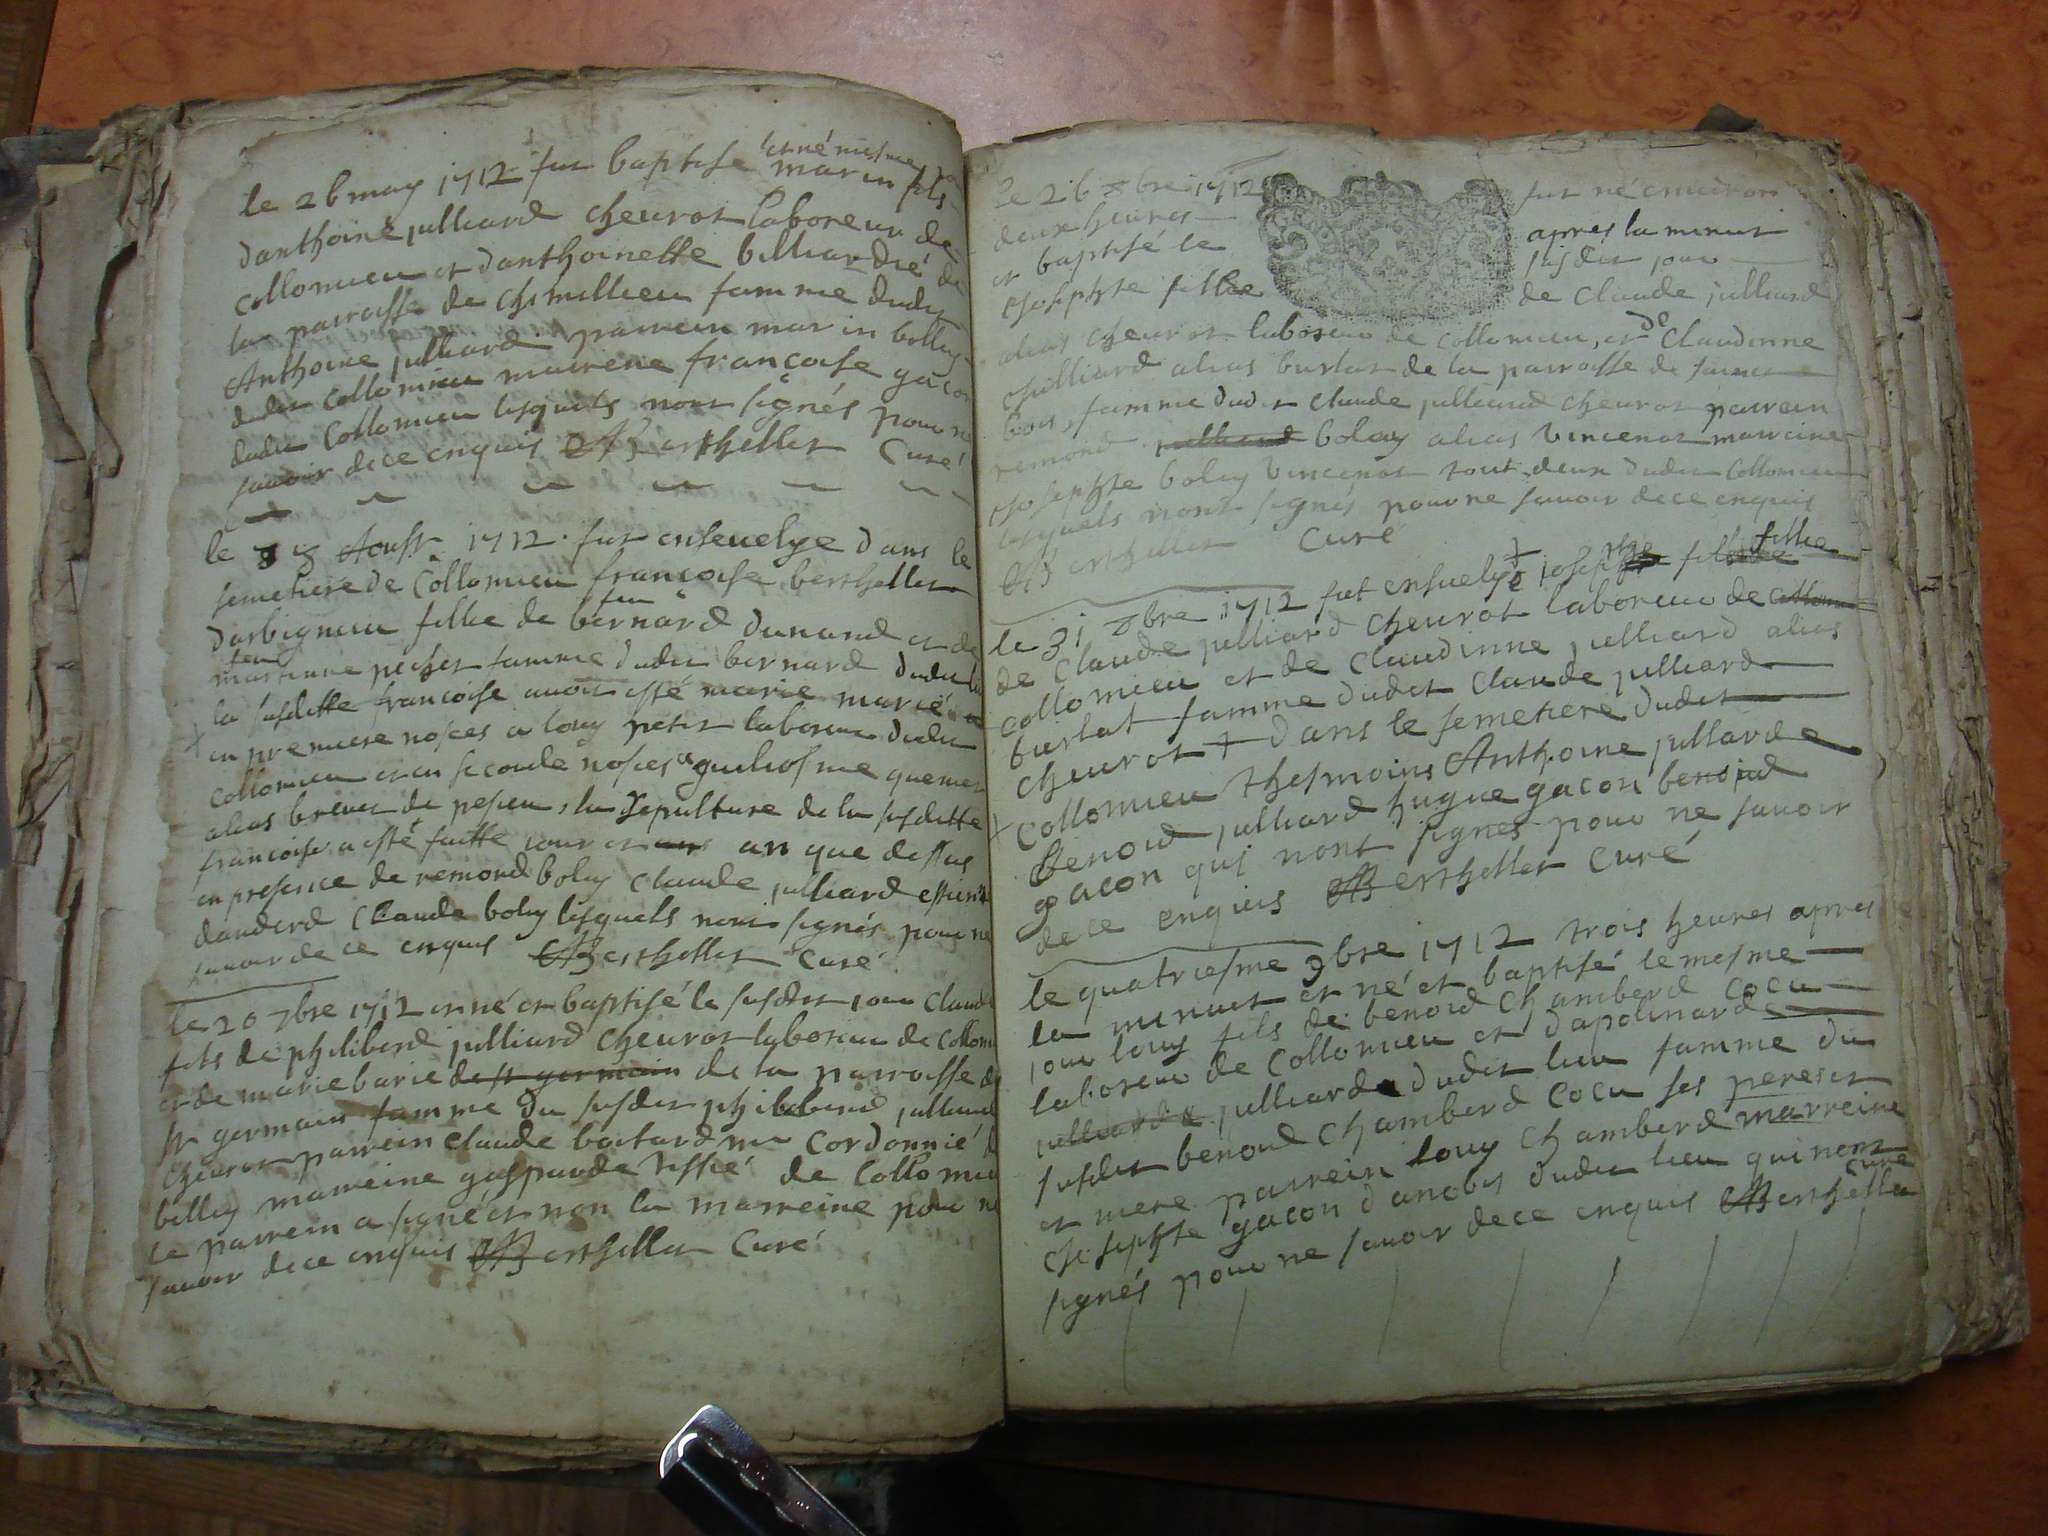 le 26 may 1712 fut baptise et né mesme
marin fils
danthoine julliard cheurot laboreur de
collomieu et danthoinette billiardié de
la parroisse de chimillieu famme dudit
Anthoine julliard parrein marin bolluy
dudit collomieu maireine francoise gacon
dudit Collomieu lesquels nont signés pour ne
savoir de ce enquis Berthellet Curé
le 8 Aoust 1712 fut ensevelye dans le
semetiere de Collomieu francoise berthellet
darbignieu fillie de feu bernard dunand et de
feu
martinne peisset famme dudit bernard dudit lieu
la susditte francoise avoit esté marie mariée
en premiere nosces a louy petit laboreur dudit
Collomieu et en seconde nosces a guiliosme quemet
alias brevet de pesieu, la sepulture de la susditte
francoise a esté faitte jour et an que dessus
en presence de remond boluy Claude julliard estienne
dauderd Claude boluy lesquels nont signés pour ne
savoir de ce enquis Berthellet Curé
le 20 7bre 1712 et né et baptisé le susdit jour Claude
fils de philiberd julliard cheurot laboreur de Collomieu
et de marie barie de st germain de la parroisse de
st germain famme du susdit philiberd julliard
cheurot parrein claude bastard me Cordonnié de
belley marreine gasparde tissié de Collomieu
le parrein a signé et non la marreine pour ne
savoir de ce enquis Berthellet Curé
Le 26 8bre 1712 fut né environ
deux heures apres la minuit
et baptisé le susdit jour
Josephte fillie de Claude julliard
alias cheurot laboreur de Collomieu, et de Claudinne
Julliard alias burlat de la parroisse de sainct
bois, famme dudit Claude julliard cheurot parrein
remond julliard boluy alias vincenot marreine
Josephte boluy vincenot tout deux dudit Collomieu
lesquels nont signés pour ne savoir de ce enquis
Berthellet Curé
le 31 8bre 1712 fut ensuelye + josephte fillie
de Claude julliard cheurot laboreur de collomieu
collomieu et de Claudinne julliard alias
burlat famme dudit Claude julliard
cheurot + dans le semetiere dudit
Collomieu thesmoins Anthoine julliard
Benoid julliard hugue gacon benoid
gacon qui nont signés pour ne savoir
de ce enquis Berthellet Curé
le quatriesme 9bre 1712 trois heures apres
la minuit et né et baptisé le mesme
jour louy fils de benoid Chamberd Cocu
laboreur de Collomieu et dapolinarde
julliarde julliarde dudit lieu famme du
susdit benoid Chamberd Cocu ses pere et
et mere parrein louy Chamberd marreine
Josephte gacon danobis dudit lieu qui nont
signés pour ne savoir de ce enquis Berthellet
curé